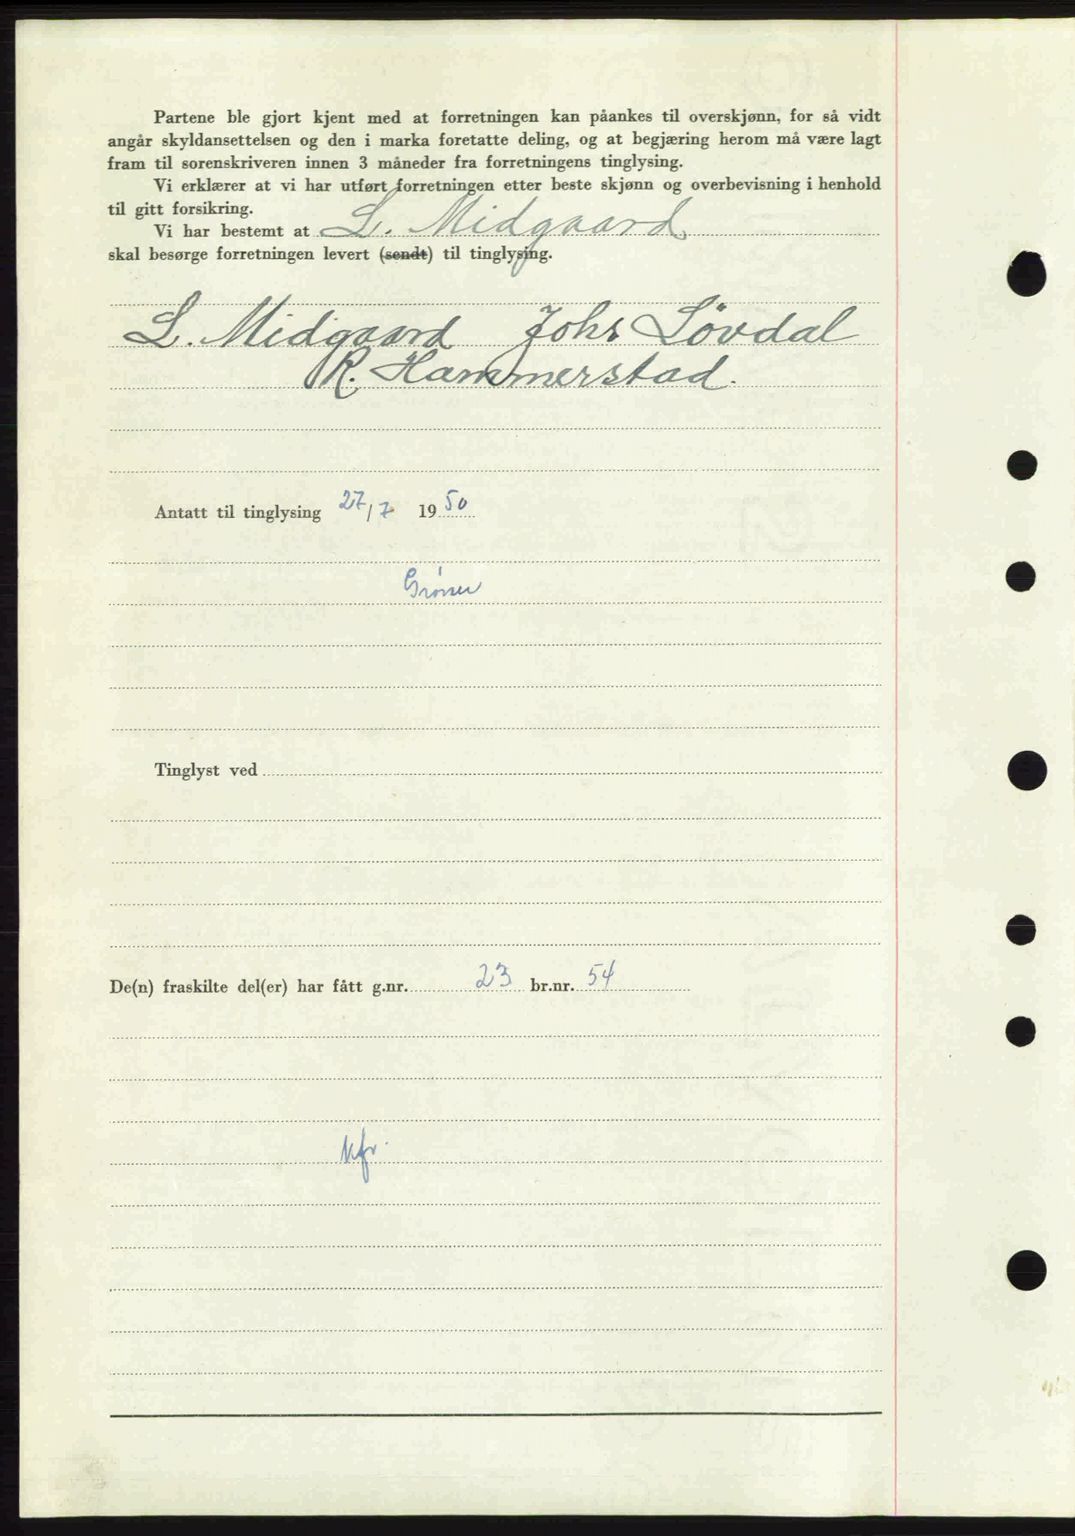 Partene ble gjort kjent med at forretningen kan påankes til overskjønn, for så vidt
angår skyldansettelsen og den i marka foretatte deling, og at begjæring herom må være lagt
fram til sorenskriveren innen 3 måneder fra forretningens tinglysing.
Vi erklærer at vi har utført forretningen etter beste skjønn og overbevisning i henhold
til gitt forsikring.
Vi har bestemt at L. Midgaard
skal besørge forretningen levert (sendt) til tinglysing.
L. Midgaard Johs Lövdal
R. Hammerstad.
Antatt til tinglysing 27/7 1950
Tinglyst ved
De(n) fraskilte del(er) har fått g.nr. 23 br.nr. 54